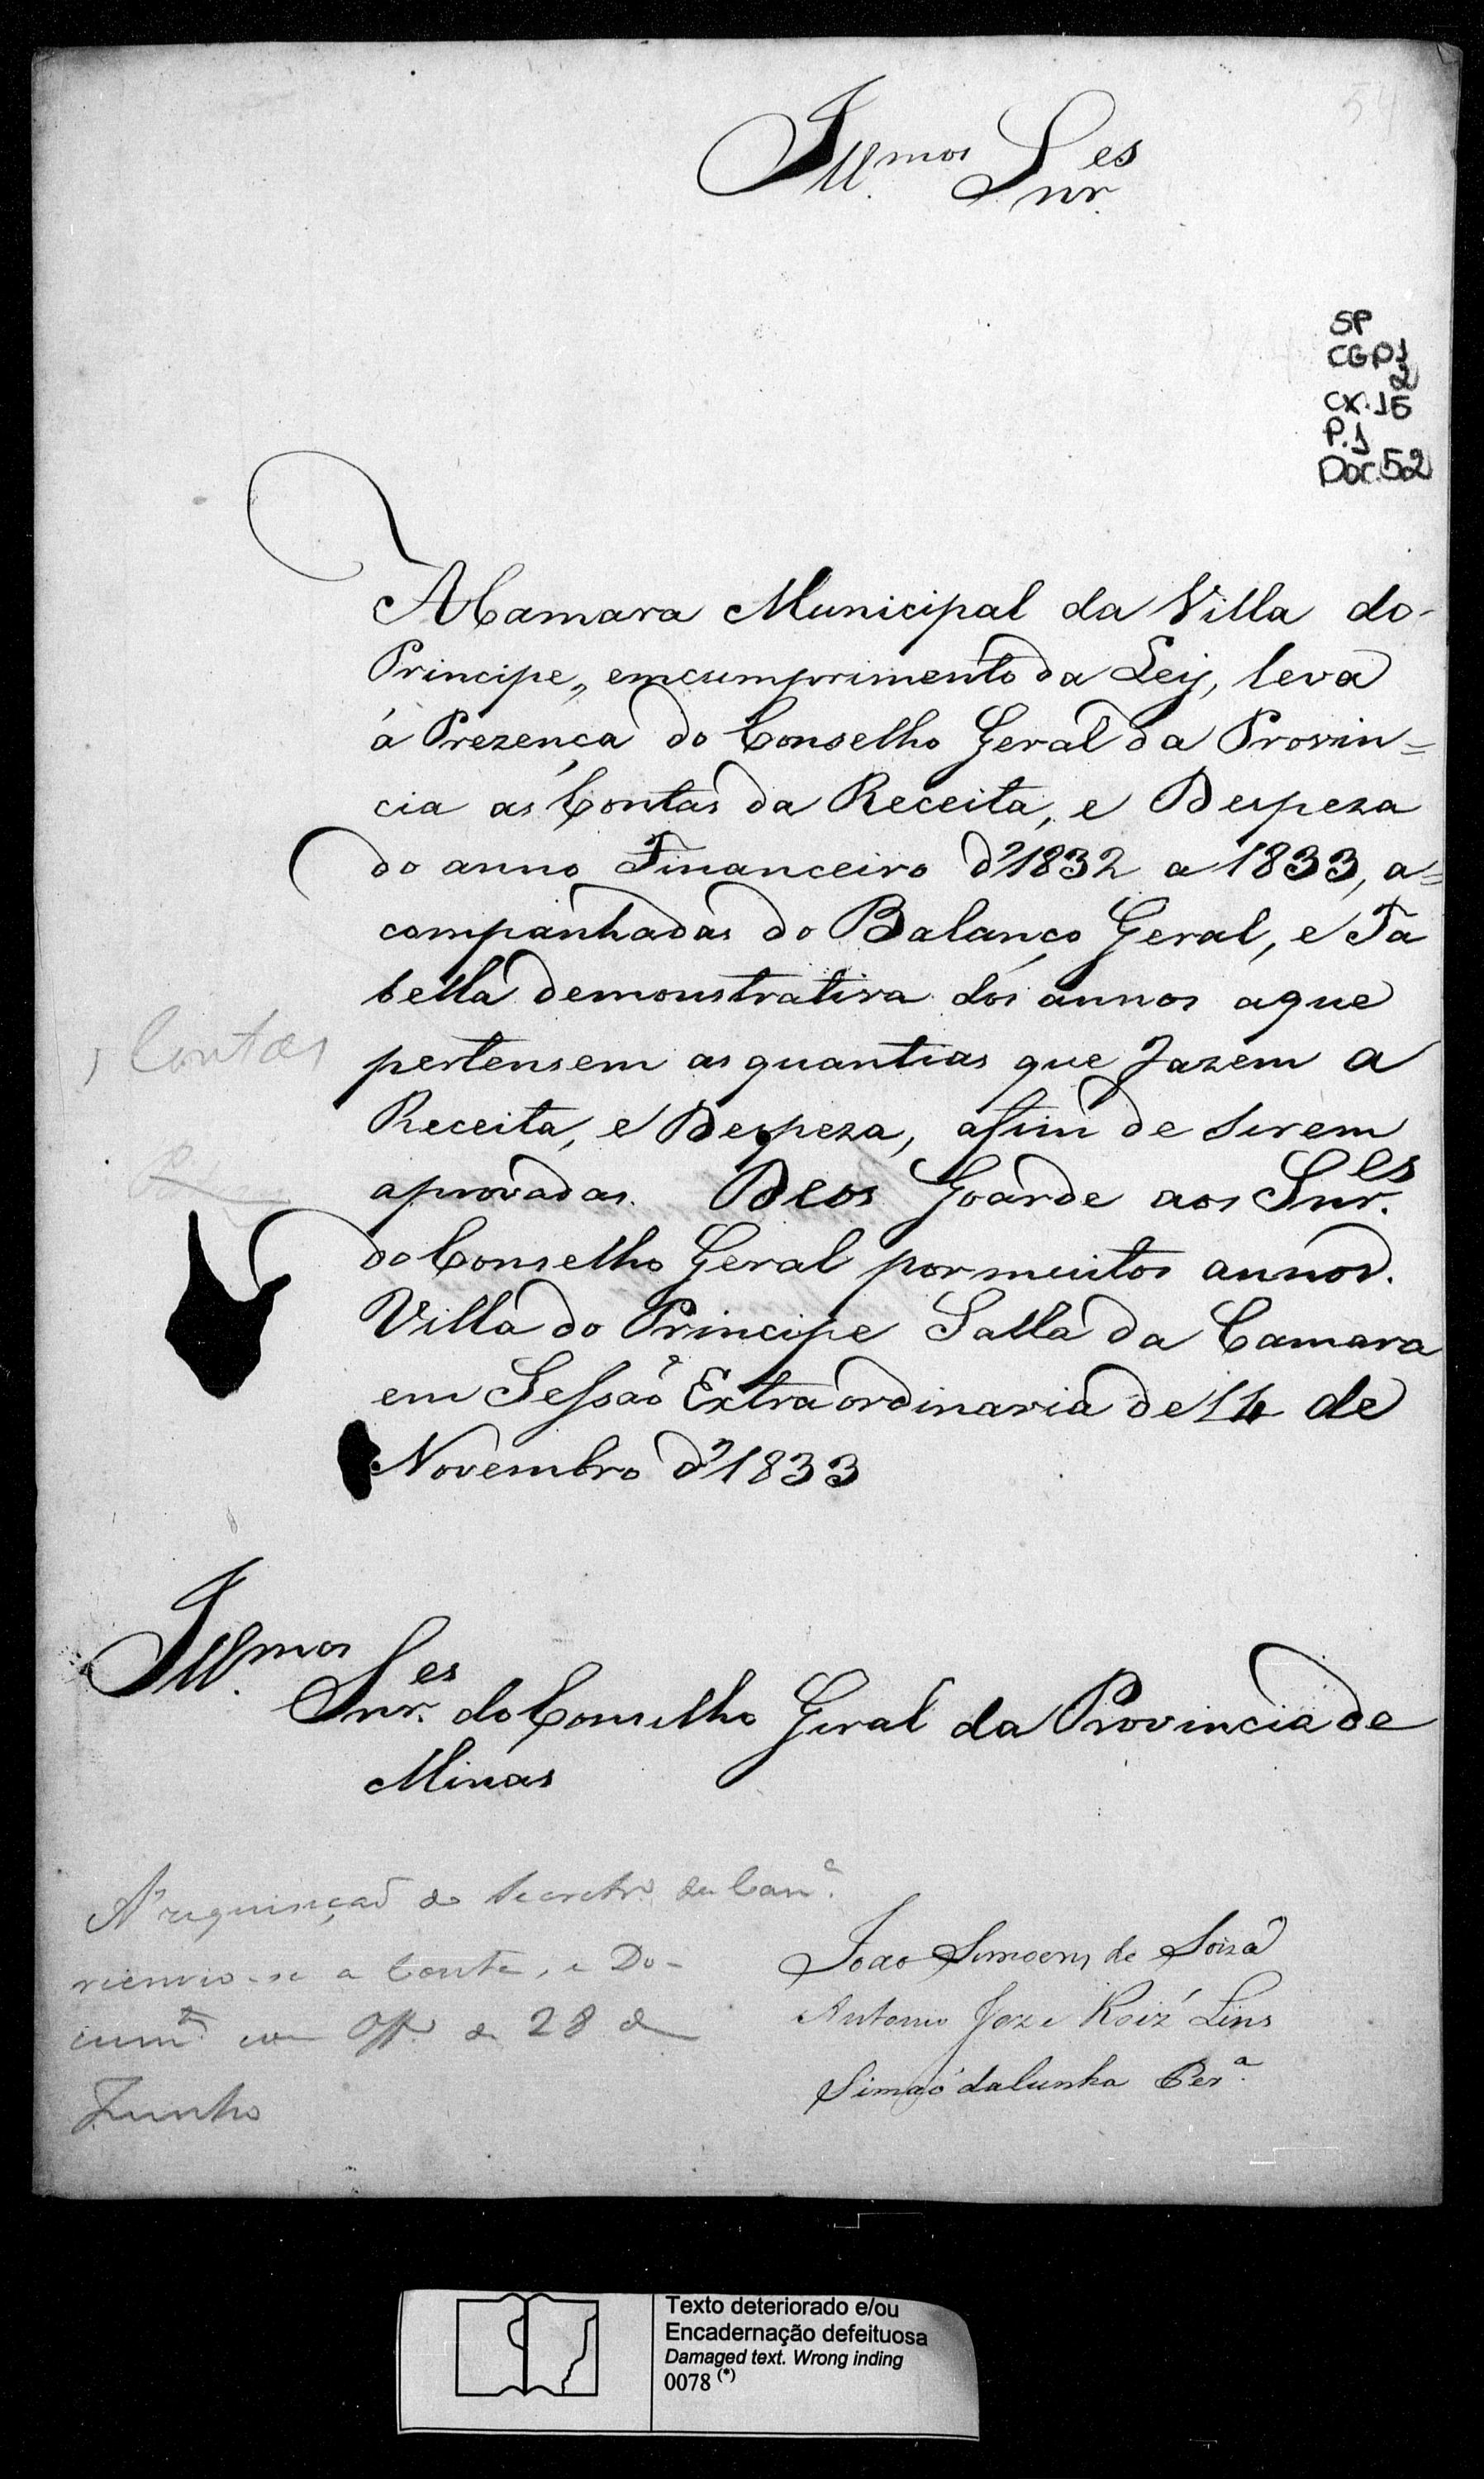 54
Ill.mos Snr.es
SP
CGP1
2
CX.15
P.1
Doc.52
A Camara Municipal da Villa do
Principe, em cumprimento da Ley, leva
á Prezença do Conselho Geral da Provin=
cia as Contas da Receita, e Despeza
do anno Financeiro d'1832 a 1833, a=
companhadas do Balanço Geral, e Ta
bella demonstrativa dos annos aque
Contas
pertensem as quantias que fazem a
Receita, e Despeza, afim de serem
aprovadas. Deos Goarde aos Snr.es
do Conselho Geral por muitos annos.
Villa do Principe Salla da Camara
em Sessaõ Extraordinaria de 14 de
Novembro d'1833
Ill.mos
Snr.es do Conselho Geral da Provincia de
Minas
A requisiçaõ do Secretr.º da Cam.ª
reenvio-se a Conta, e Do-
cum.tos com Off.º de 28 de
Junho
Joao Simoens de Soiza
Antonio Joze Roiz' Lins
Simaõ daCunha Per.ª
Texto deteriorado e/ou
Encadernação defeituosa
Damaged text. Wrong inding
0078 (*)